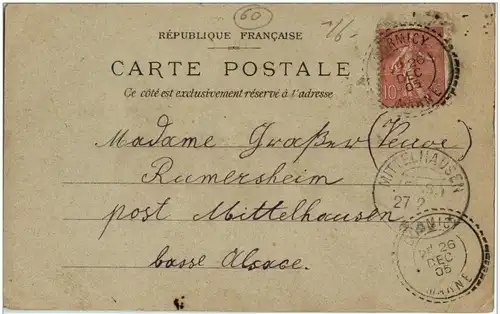 60
RÉPUBLIQUE FRANÇAISE
CARTE POSTALE
Ce côté est exclusivement réservé à l'adresse
10
CORMICY
26
DEC
05
MARNE
Madame Graßer (Veuve)
Rumersheim
post Mittelhausen
basse Alsace.
MITTELHAUSEN
27
CORMICY
26
DEC
05
MARNE